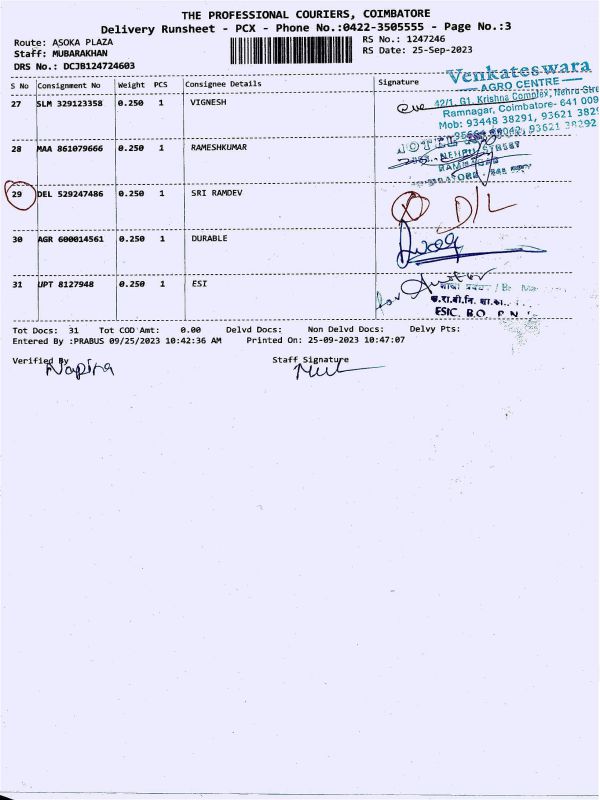 THE PROFESSIONAL COURIERS, COIMBATORE
Delivery Runsheet - PCX - Phone No.:0422-3505555 - Page No.:3
Route: ASOKA PLAZA
RS No.: 1247246
Staff: MUBARAKHAN
RS Date: 25-Sep-2023
DRS No.: DCJB124724603
S No Consignment No Weight PCS Consignee Details Signature
Venkateswara
AGRO CENTRE
27 SLM 329123358 0.250 1 VIGNESH
42/1, G1, Krishna Complex, Nehru Stre
Ramnagar, Coimbatore- 641 009
Mob: 93448 38291, 93621 3829
93621 38292
28 MAA 861079666 0.250 1 RAMESHKUMAR
HOTEL
NEHRU STREET
RAMNAGAR
29 DEL 529247486 0.250 1 SRI RAMDEV
D/L
30 AGR 600014561 0.250 1 DURABLE
31 UPT 8127948 0.250 1 ESI
for
ESIC, B.O
Tot Docs: 31 Tot COD Amt: 0.00 Delvd Docs: Non Delvd Docs: Delvy Pts:
Entered By :PRABUS 09/25/2023 10:42:36 AM Printed On: 25-09-2023 10:47:07
Verified By Staff Signature